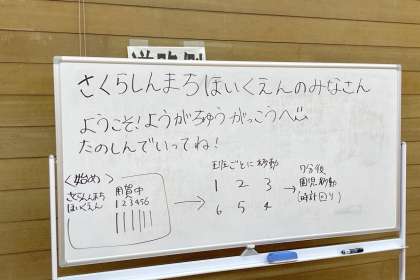 さくらしんまちほいくえんのみなさん
ようこそ!ようがちゅうがっこうへ
たのしんでいってね!
<始め>
さくらしんまち
ほいくえん
用賀中
1 2 3 4 5 6
→
班ごとに移動
1 2 3
6 5 4
→
7分後
園児移動
(時計回り)